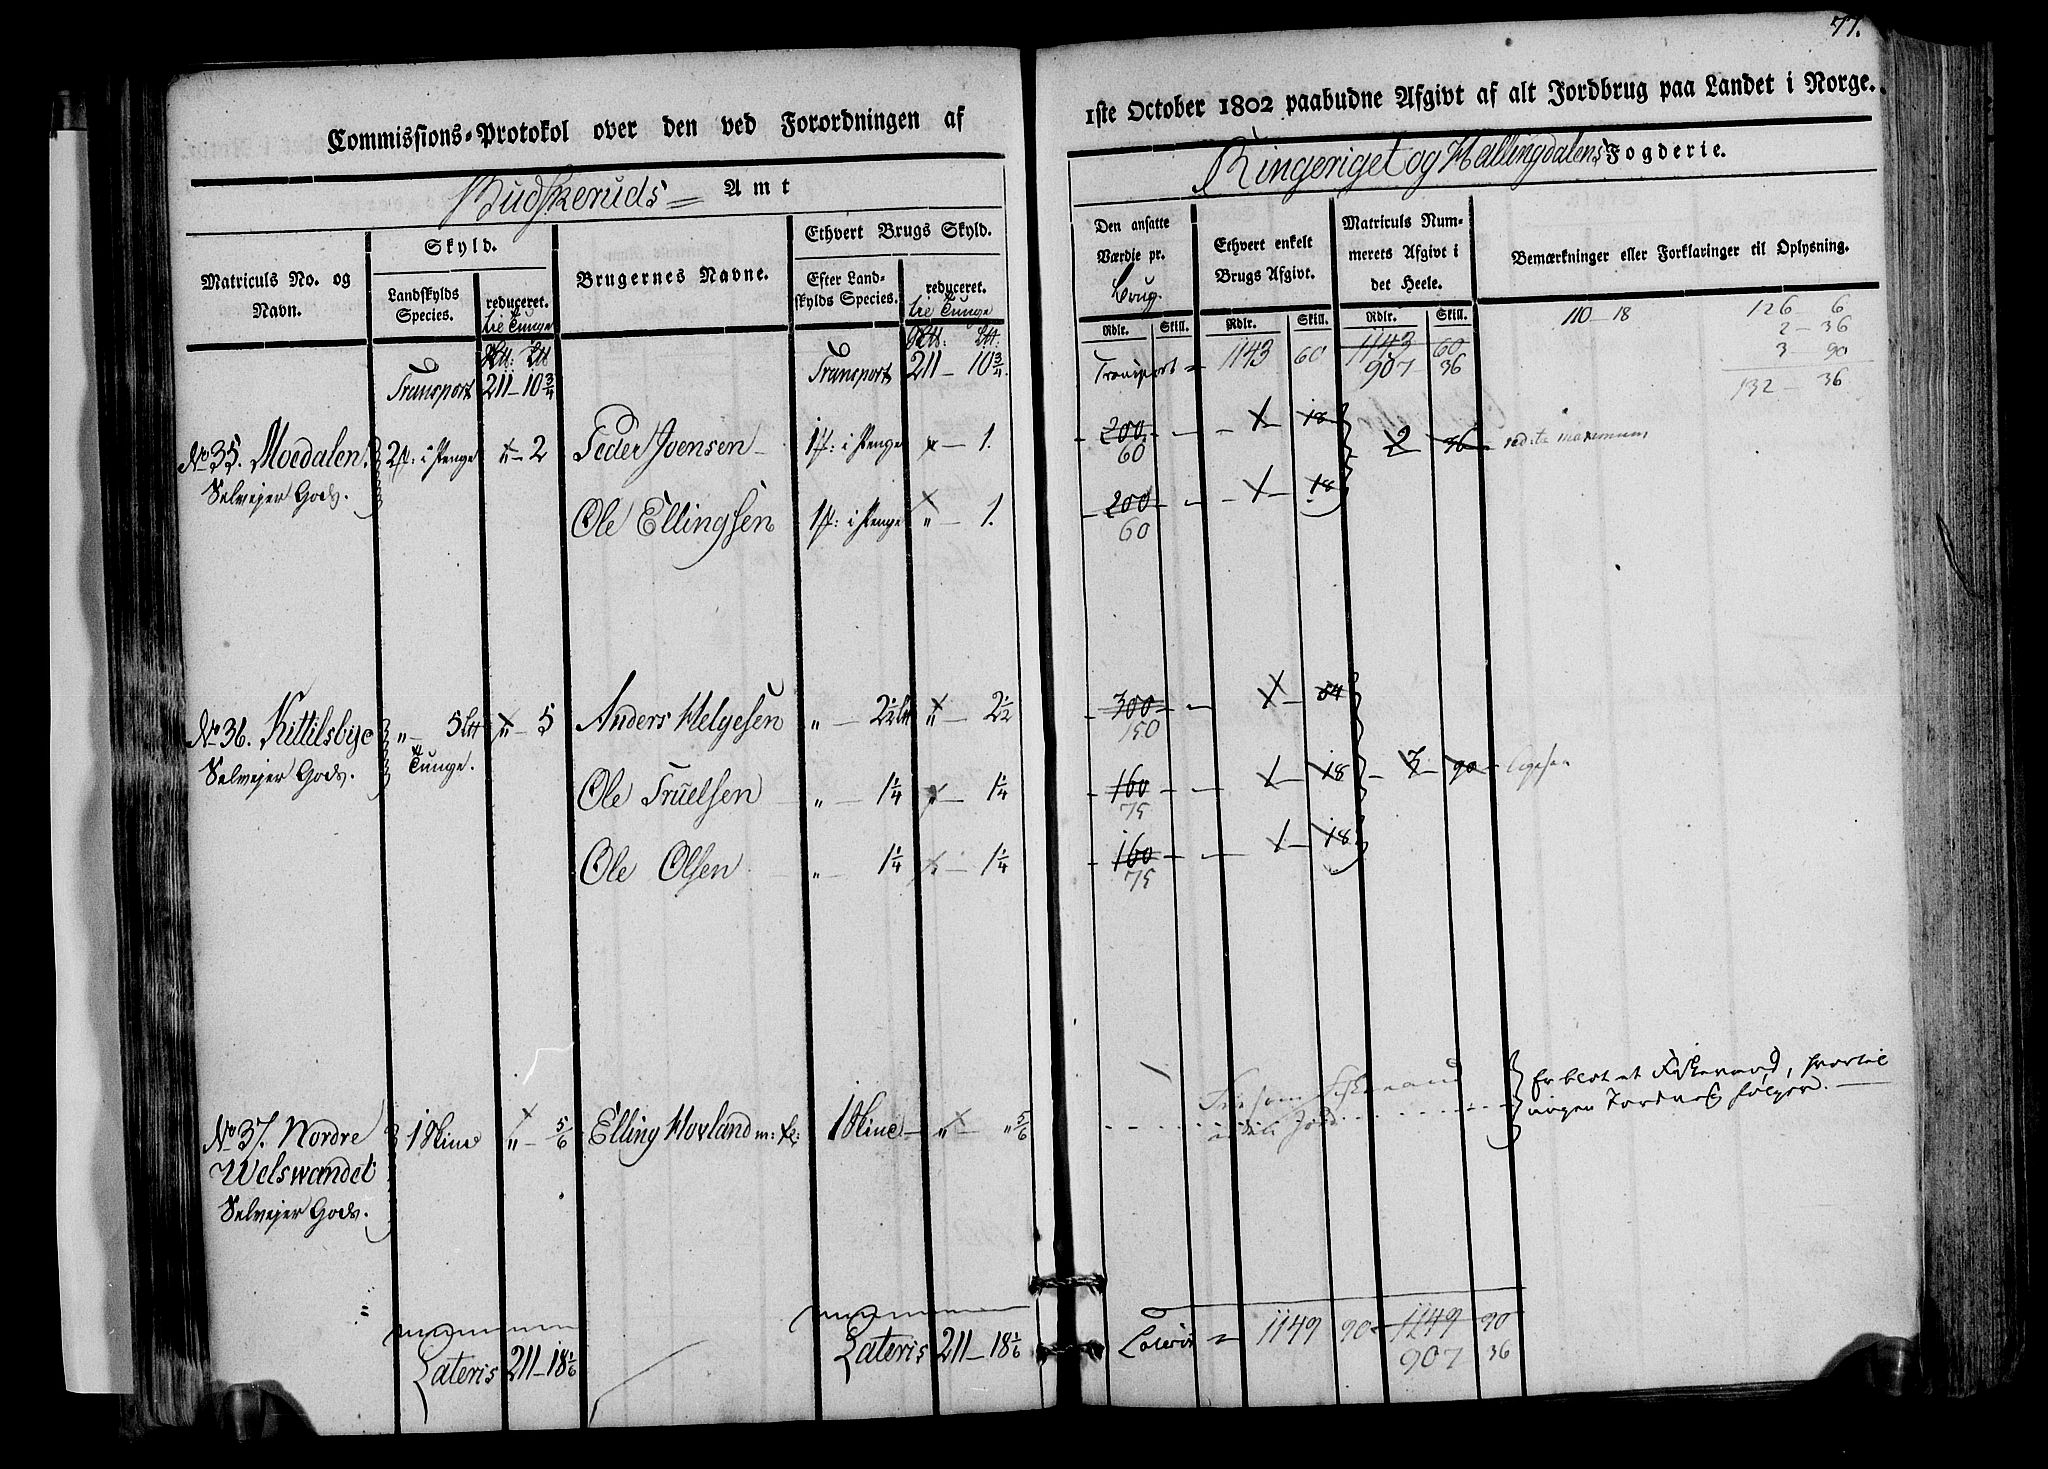 77.
Commissions-Protokol over den ved Forordningen af
1ste October 1802 paabudne Afgivt af alt Jordbrug paa Landet i Norge.
Budskeruds Amt
Ringeriget og Hallingdalens Fogderie.
Matriculs No. og Navn.
Skyld.
Landskylds Species.
reduceret. til Tunge
Brugernes Navne.
Ethvert Brugs Skyld.
Efter Landskylds Species.
reduceret. til Tunge
Den ansatte Værdie pr. Brug.
Rdlr. Skill.
Ethvert enkelt Brugs Afgivt.
Rdlr. Skill.
Matriculs Nummerets Afgivt i det Heele.
Rdlr. Skill.
Bemærkninger eller Forklaringer til Oplysning.
110 - 18
126 - 6
2 - 36
3 - 90
132 - 36
Transport 211 - 10 3/4 Transport 211 - 10 3/4 Transport 1143 60 1143 60
907 36
No 35. Moedalen 2 ß: i Penge " - 2 Peder Joensen 1 ß: i Penge " - 1. 200 - 1 - 18 2 36
Selvejer Gods. 60
Ole Ellingsen 1 ß: i Penge " - 1. 200 - 1 - 18
60
No 36. Kittilsbye " - 5 Lt " - 5 Anders Helgesen " - 2 1/2 Lt " - 2 1/2 300 - 1 - 54
Selvejer Gods. Tunge. 150
Ole Truelsen " - 1 1/4 " - 1 1/4 160 - 1 - 18 3 - 90
75
Ole Olsen " - 1 1/4 " - 1 1/4 160 - 1 - 18
75
No 37. Nordre 1 Skind " - 5/6 Elling Hovland m: fl: 1 Skind " - " 5/6
Welsvandet
Selvejer Gods.
Er blot et Fiskevand, hvortil
ingen Jordvej følger.
Lateris 211 - 18 1/6 Lateris 211 - 18 1/6 Lateris 1149 90 1149 90
907 36